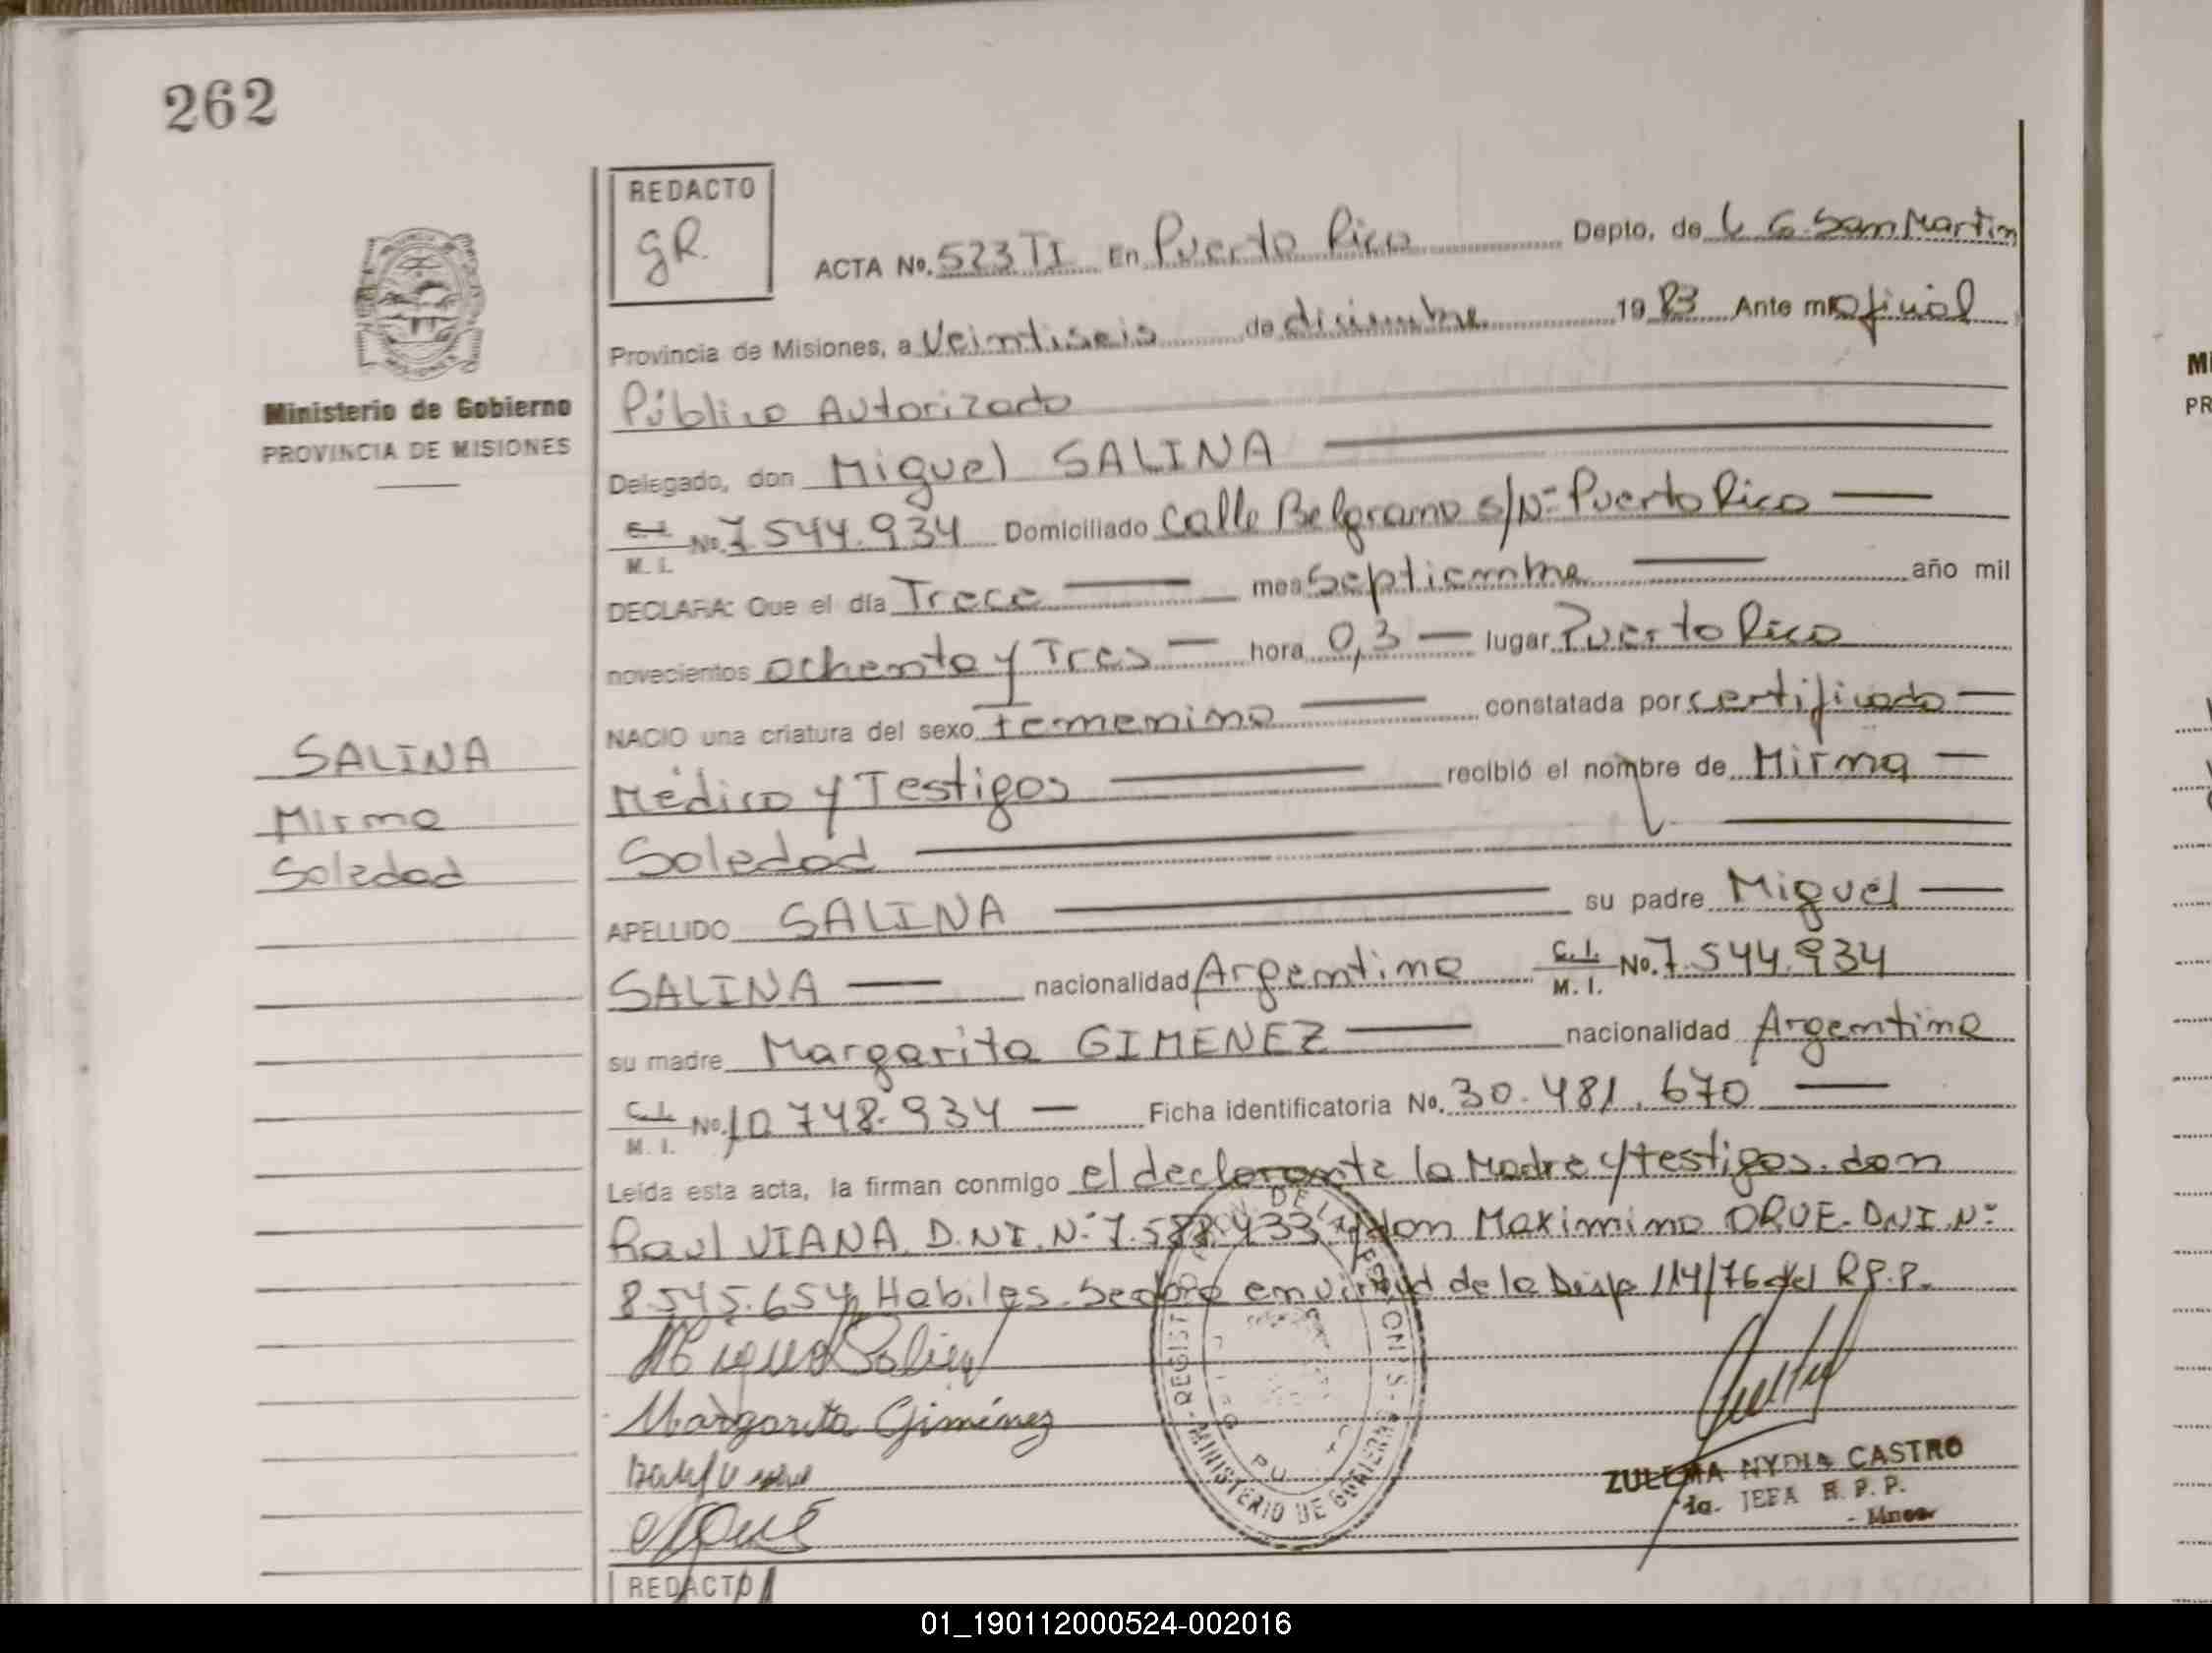 262
REDACTO
gR.
ACTA No. 523 TI En Puerto Rico Depto. de L G. San Martin
Provincia de Misiones, a Veintiseis de diciembre 19 83 Ante mi Oficial
Público Autorizado
Ministerio de Gobierno
PROVINCIA DE MISIONES
Delegado, don Miguel SALINA
C.I. M. I. No. 7.544.934 Domiciliado Calle Belgrano s/Nº Puerto Rico
DECLARA: Que el día Trece mes Septiembre año mil
novecientos ochenta y Tres hora 0,3 lugar Puerto Rico
NACIO una criatura del sexo femenino constatada por certificado
SALINA
Mirna
Soledad
Médico y Testigos recibió el nombre de Mirna
Soledad
APELLIDO SALINA su padre Miguel
SALINA nacionalidad Argentina C.I. M. I. No. 7.544.934
su madre Margarita GIMENEZ nacionalidad Argentina
C.I. M. I. No. 10.748.934 Ficha identificatoria No. 30.481.670
Leída esta acta, la firman conmigo el declarante la Madre y testigos. don
Raul VIANA. D.NI.Nº 7.588.433 y don Maximino ORUE. DNI.Nº
8.545.654 Habiles. Se labra en virtud de la Disp 114/76 del R.P.P.
Miguel Salina
Margarita Giménez
ZULEMA NYDIA CASTRO
JEFA R. P. P.
MINISTERIO DE GOBIERNO
REDACTO
01_190112000524-002016